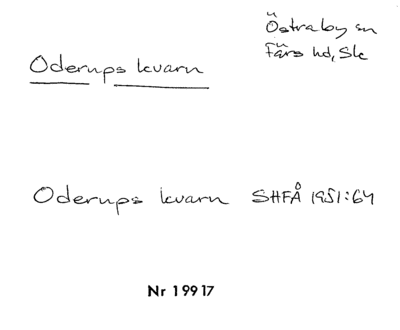 Östraby sn
Färs hd, Sk
Oderups kvarn
Oderups kvarn SHFÅ 1951:64
Nr 19917